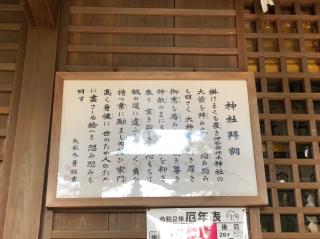 神社拝詞
掛けまくも畏き 神社の
大前を拝み奉りて恐み恐み
も白さく大神等の広き厚き
御恵を辱み奉り高き尊き
神教のまにまに を仰ぎ
奉り直き正しき真心もちて
誠の道に違ふことなく負ひ
持つ業に励ましめ給ひ家門
高く身健に世のため人のため
に尽さしめ給へと恐み恐みも
白す
令和2年 厄年表
後厄